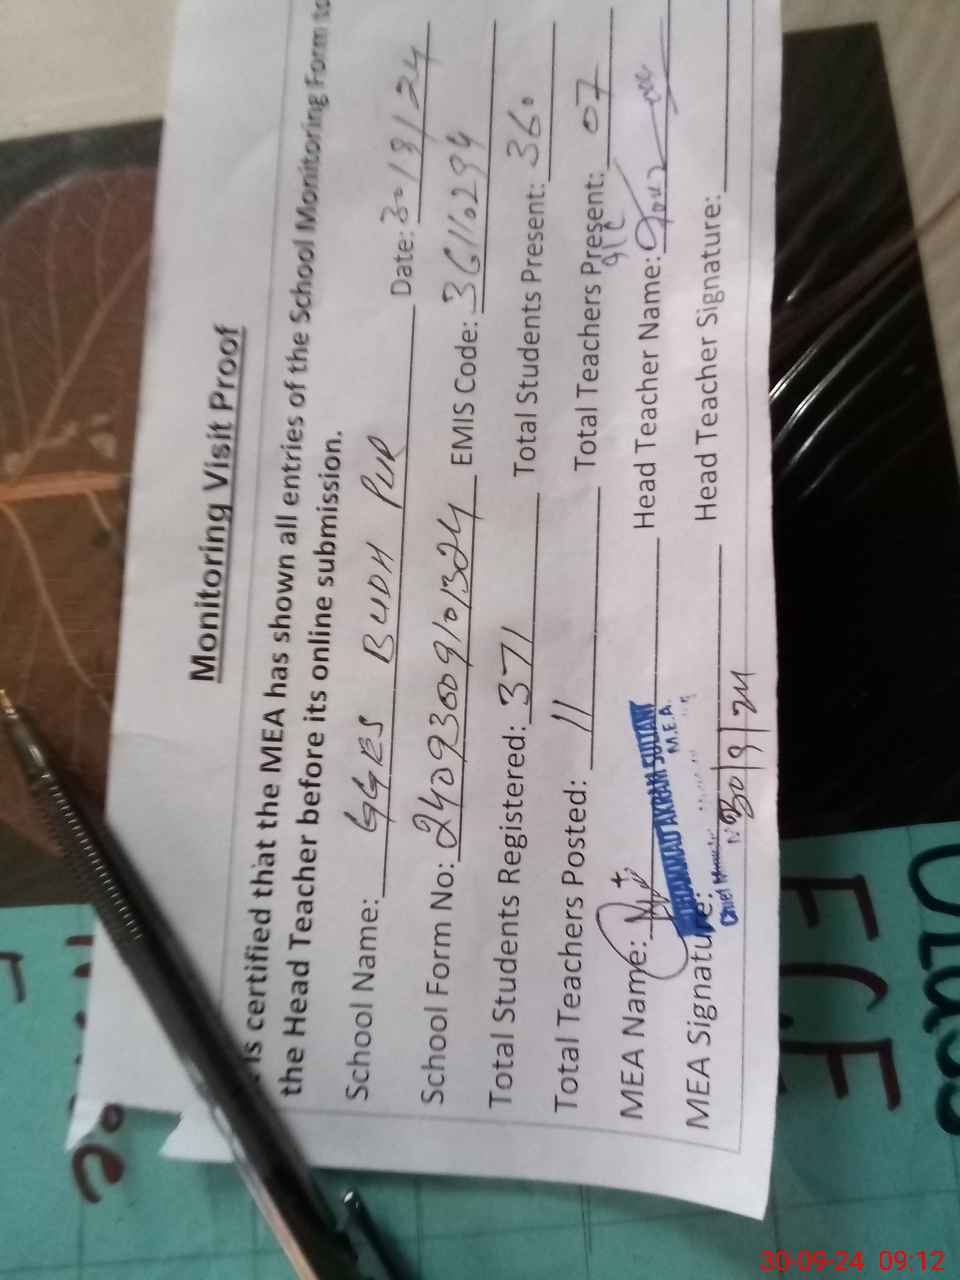 Monitoring Visit Proof
is certified that the MEA has shown all entries of the School Monitoring Form to
the Head Teacher before its online submission.
School Name: GGES BUDH PUR Date: 30/9/24
School Form No: 24093009101324 EMIS Code: 36110294
Total Students Registered: 371 Total Students Present: 360
Total Teachers Posted: 11 Total Teachers Present: 07
MEA Name: Head Teacher Name:
MUHAMMAD AKRAM SULTANI
M.E.A.
MEA Signature: Head Teacher Signature:
Chief
30/9/24
ECE
Class
30-09-24 09:12